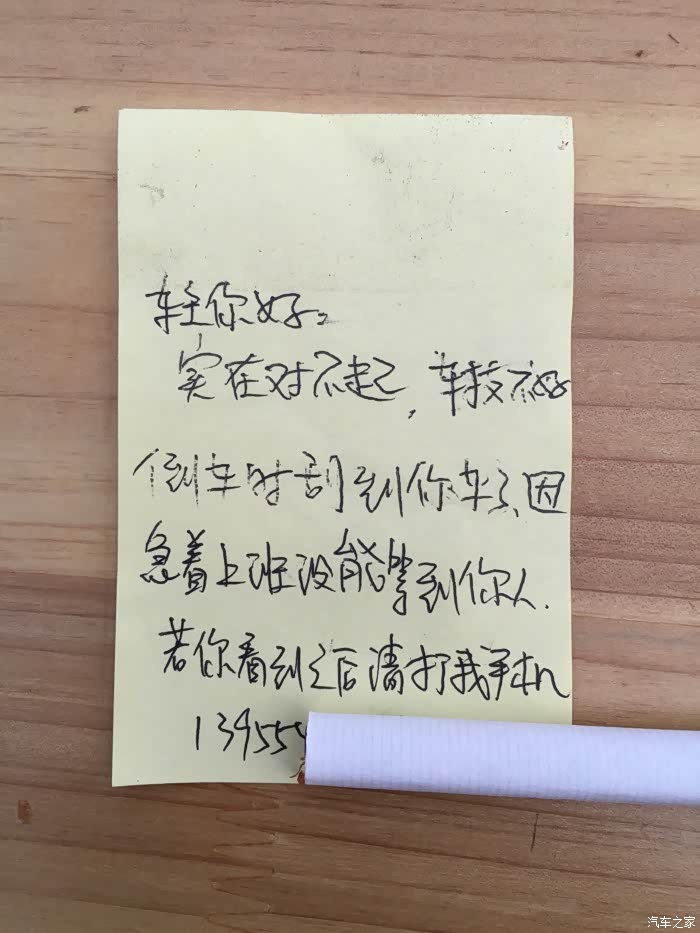 车主你好：
实在对不起，车技不好
倒车时刮到你车了、因
急着上班没能等到你人.
若你看到之后请打我手机
139555
汽车之家